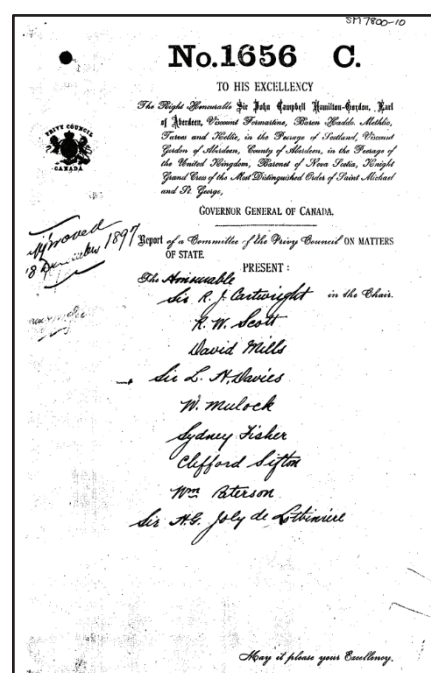 SM7800-10
No. 1656 C.
TO HIS EXCELLENCY
The Right Honourable Sir John Campbell Hamilton-Gordon, Earl
of Aberdeen, Viscount Formartine, Baron Haddo, Methlic,
Tarves and Kellie, in the Peerage of Scotland, Viscount
Gordon of Aberdeen, County of Aberdeen, in the Peerage of
the United Kingdom, Baronet of Nova Scotia, Knight
Grand Cross of the Most Distinguished Order of Saint Michael
and St. George,
PRIVY COUNCIL
CANADA
GOVERNOR GENERAL OF CANADA.
Approved
18 December 1897
Report of a Committee of the Privy Council ON MATTERS
OF STATE.
PRESENT:
The Honourable
Sir R. J. Cartwright in the Chair.
R. W. Scott
David Mills
Sir L. H. Davies
W. Mulock
Sydney Fisher
Clifford Sifton
Wm Paterson
Sir H.G. Joly de Lotbinière
May it please your Excellency.